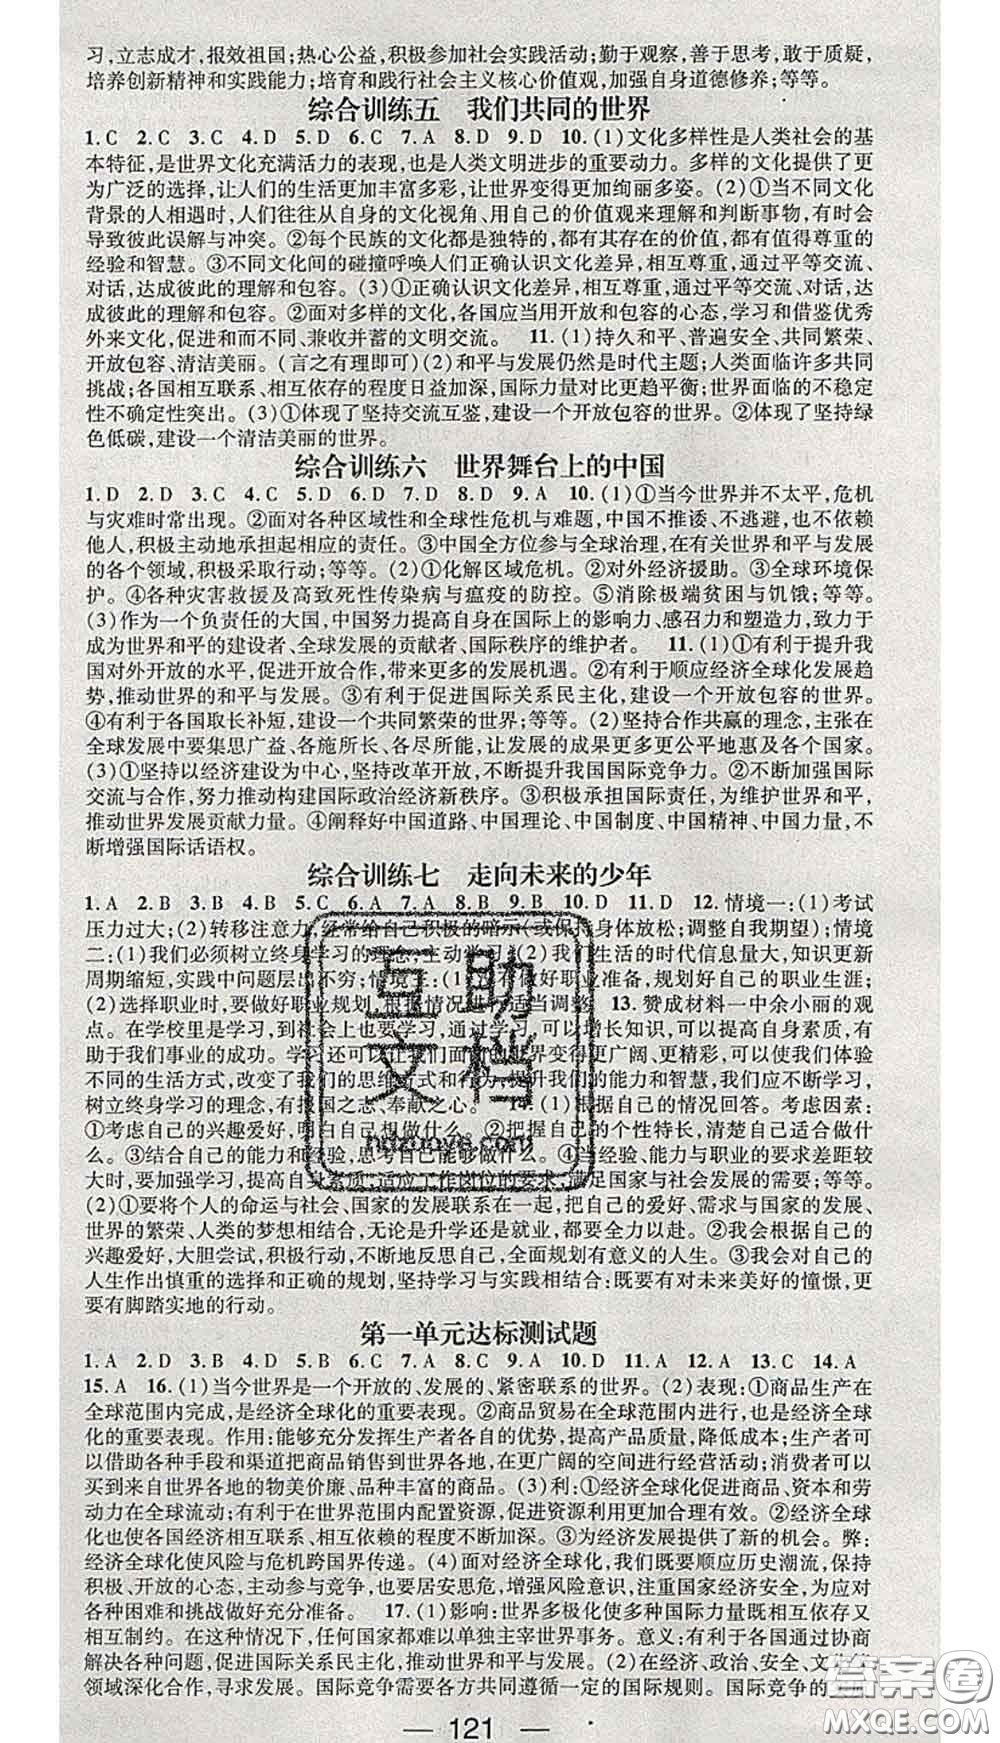 习,立志成才,报效祖国;热心公益,积极参加社会实践活动;勤于观察,善于思考,敢于质疑,
培养创新精神和实践能力;培育和践行社会主义核心价值观,加强自身道德修养;等等。
综合训练五 我们共同的世界
1.C 2.C 3.C 4.D 5.D 6.C 7.A 8.D 9.D 10.(1)文化多样性是人类社会的基
本特征,是世界文化充满活力的表现,也是人类文明进步的重要动力。多样的文化提供了更
为广泛的选择,让人们的生活更加丰富多彩,让世界变得更加绚丽多姿。(2)①当不同文化
背景的人相遇时,人们往往从自身的文化视角、用自己的价值观来理解和判断事物,有时会
导致彼此误解与冲突。②每个民族的文化都是独特的,都有其存在的价值,都有值得尊重的
经验和智慧。③不同文化间的碰撞呼唤人们正确认识文化差异,相互尊重,通过平等交流、
对话,达成彼此的理解和包容。(3)①正确认识文化差异,相互尊重,通过平等交流、对话,达
成彼此的理解和包容。②面对多样的文化,各国应当用开放和包容的心态,学习和借鉴优秀
外来文化,促进和而不同、兼收并蓄的文明交流。 11.(1)持久和平、普遍安全、共同繁荣、
开放包容、清洁美丽。(言之有理即可)(2)和平与发展仍然是时代主题;人类面临许多共同
挑战;各国相互联系、相互依存的程度日益加深,国际力量对比更趋平衡;世界面临的不稳定
性不确定性突出。(3)①体现了坚持交流互鉴,建设一个开放包容的世界。②体现了坚持绿
色低碳,建设一个清洁美丽的世界。
综合训练六 世界舞台上的中国
1.D 2.D 3.C 4.C 5.D 6.D 7.B 8.D 9.A 10.(1)①当今世界并不太平,危机
与灾难时常出现。②面对各种区域性和全球性危机与难题,中国不推诿、不逃避,也不依赖
他人,积极主动地承担起相应的责任。③中国全方位参与全球治理,在有关世界和平与发展
的各个领域,积极采取行动;等等。(2)①化解区域危机。②对外经济援助。③全球环境保
护。④各种灾害救援及高致死性传染病与瘟疫的防控。⑤消除极端贫困与饥饿;等等。
(3)作为一个负责任的大国,中国努力提高自身在国际上的影响力、感召力和塑造力,致力于
成为世界和平的建设者、全球发展的贡献者、国际秩序的维护者。 11.(1)①有利于提升我
国对外开放的水平,促进开放合作,带来更多的发展机遇。②有利于顺应经济全球化发展趋
势,推动世界的和平与发展。③有利于促进国际关系民主化,建设一个开放包容的世界。
④有利于各国取长补短,建设一个共同繁荣的世界;等等。(2)坚持合作共赢的理念,主张在
全球发展中要集思广益、各施所长、各尽所能,让发展的成果更多更公平地惠及各个国家。
(3)①坚持以经济建设为中心,坚持改革开放,不断提升我国国际竞争力。②不断加强国际
交流与合作,努力推动构建国际政治经济新秩序。③积极承担国际责任,为维护世界和平,
推动世界发展贡献力量。④阐释好中国道路、中国理论、中国制度、中国精神、中国力量,不
断增强国际话语权。
综合训练七 走向未来的少年
1.A 2.B 3.B 4.A 5.C 6.A 7.A 8.B 9.B 10.D 11.D 12.情境一:(1)考试
压力过大;(2)转移注意力,经常给自己积极的暗示(或保持身体放松;调整自我期望);情境
二:(1)我们必须树立终身学习的理念,主动学习;(2)我们生活的时代信息量大,知识更新
周期缩短,实践中问题层出不穷;情境三:(1)没有做好职业准备,规划好自己的职业生涯;
(2)选择职业时,要做好职业规划,根据情况进行适当调整。 13.赞成材料一中余小丽的观
点。在学校里是学习,到社会上也要学习,通过学习,可以增长知识,可以提高自身素质,有
助于我们事业的成功。学习还可以让我们面前的世界变得更广阔、更精彩,可以使我们体验
不同的生活方式,改变了我们的思维方式和行为,提升我们的能力和智慧,我们应不断学习,
树立终身学习的理念,有报国之志、奉献之心。 14.(1)根据自己的情况回答。考虑因素:
①考虑自己的兴趣爱好,想想自己想做什么。②把握自己的个性特长,清楚自己适合做什
么。③结合自己的能力和经验,思考自己能够做什么。④当能力、能力与职业的要求差距较
大时,要加强学习,提高自身素质,适应工作岗位的要求,满足国家与社会发展的需要;等等。
(2)①要将个人的命运与社会、国家的发展联系在一起,把自己的爱好、需求与国家的发展、
世界的繁荣、人类的梦想相结合,无论是升学还是就业,都要全力以赴。②我会根据自己的
兴趣爱好,大胆尝试,积极行动,不断地反思自己,全面规划有意义的人生。③我会对自己的
人生作出慎重的选择和正确的规划,坚持学习与实践相结合:既要有对未来美好的憧憬,更
要有脚踏实地的行动。
第一单元达标测试题
1.A 2.D 3.B 4.D 5.B 6.C 7.A 8.C 9.A 10.D 11.A 12.A 13.C 14.A
15.A 16.(1)当今世界是一个开放的、发展的、紧密联系的世界。(2)表现:①商品生产在
全球范围内完成,是经济全球化的重要表现。②商品贸易在全球范围内进行,也是经济全球
化的重要表现。作用:能够充分发挥生产者各自的优势,提高产品质量,降低成本;生产者可
以借助各种手段和渠道把商品销售到世界各地,在更广阔的空间进行经营活动;消费者可以
买到来自世界各地的物美价廉、品种丰富的商品。(3)利:①经济全球化促进了商品、资本和劳
动力在全球流动;有利于在世界范围内配置资源,促进资源利用更加合理有效。②经济全球
化也使各国经济相互联系、相互依存的程度不断加深。③为经济发展提供了新的机会。弊:
经济全球化使风险与危机跨国界传递。(4)面对经济全球化,我们既要顺应历史潮流,保持
积极、开放的心态,主动参与竞争,也要居安思危,增强风险意识,注重国家经济安全,为应对
各种困难和挑战做好充分准备。 17.(1)影响:世界多极化使多种国际力量既相互依存又
相互制约。在这种情况下,任何国家都难以单独主宰世界事务。意义:有利于各国通过协商
解决各种问题,促进国际关系民主化,推动世界和平与发展。(2)在经济、政治、安全、文化等
领域深化合作,寻求发展。国际竞争需要各方共同遵循一定的国际规则。国际竞争的
— 121 —
互助
文档
hdzuoye.com
答案卷
MXQE.COM